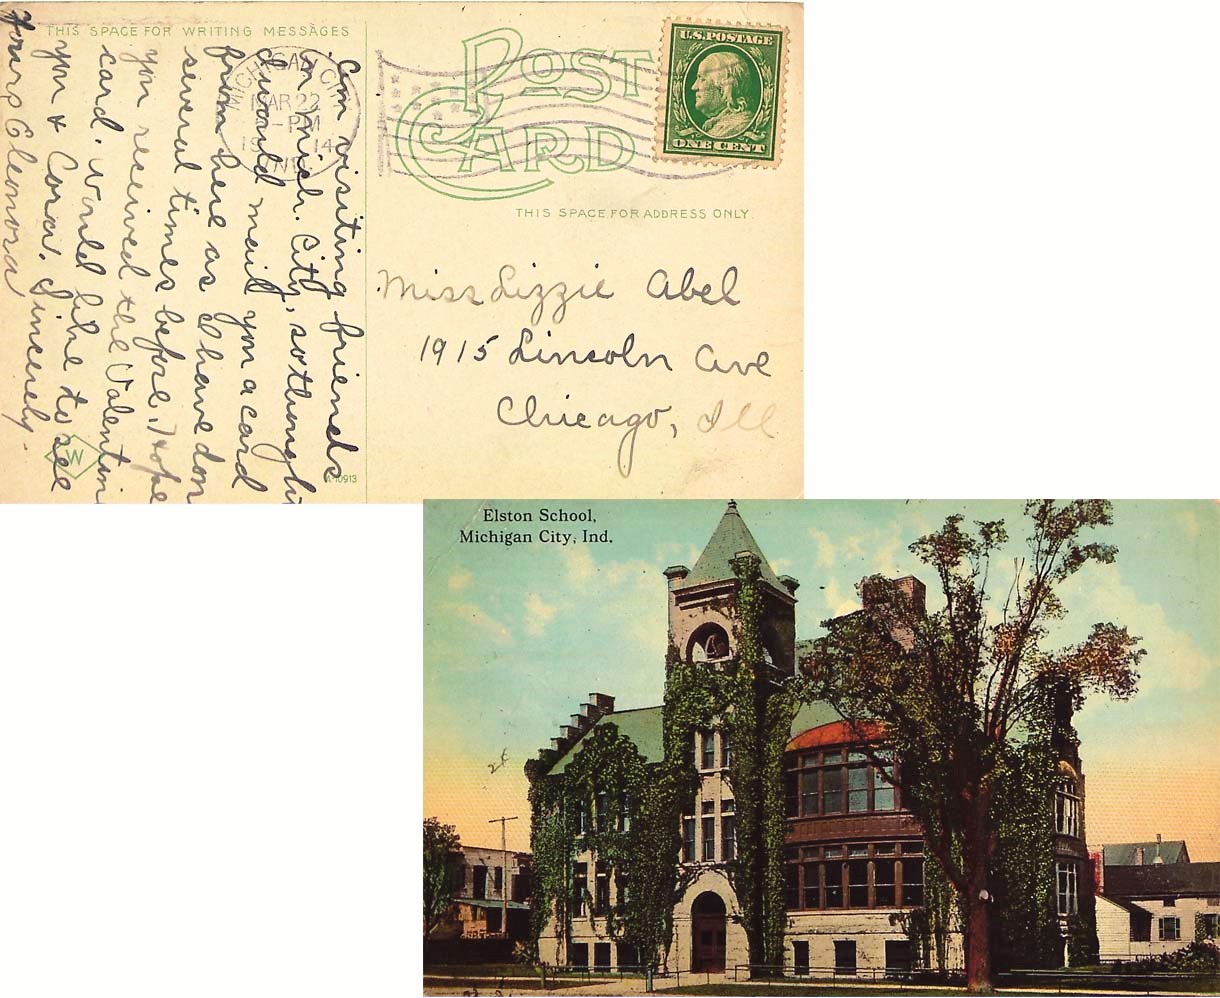 THIS SPACE FOR WRITING MESSAGES
am visiting friends
in Mich. City, so though
I would mail you a card
from here as I have don
several times before. I hope
you received the Valentin
card. would like to see
you & Cora. Sincerely.
Yours Eleonora
W
A-10913
POST
CARD
MICHIGAN CITY
MAR 22
-PM
1914
IND.
U.S. POSTAGE
ONE CENT
THIS SPACE FOR ADDRESS ONLY.
Miss Lizzie Abel
1915 Lincoln Ave
Chicago, Ill
Elston School,
Michigan City, Ind.